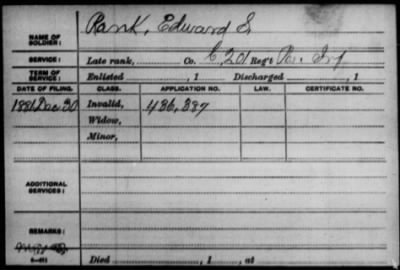 Rank, Edward S.
NAME OF SOLDIER:
SERVICE: Late rank, Co. C, 201 Reg't Pa. Inf
TERM OF SERVICE: Enlisted , 1 Discharged , 1
DATE OF FILING. CLASS. APPLICATION NO. LAW. CERTIFICATE NO.
1881 Dec 30 Invalid, 436,337
Widow,
Minor,
ADDITIONAL SERVICES:
REMARKS:
Died , 1 , at